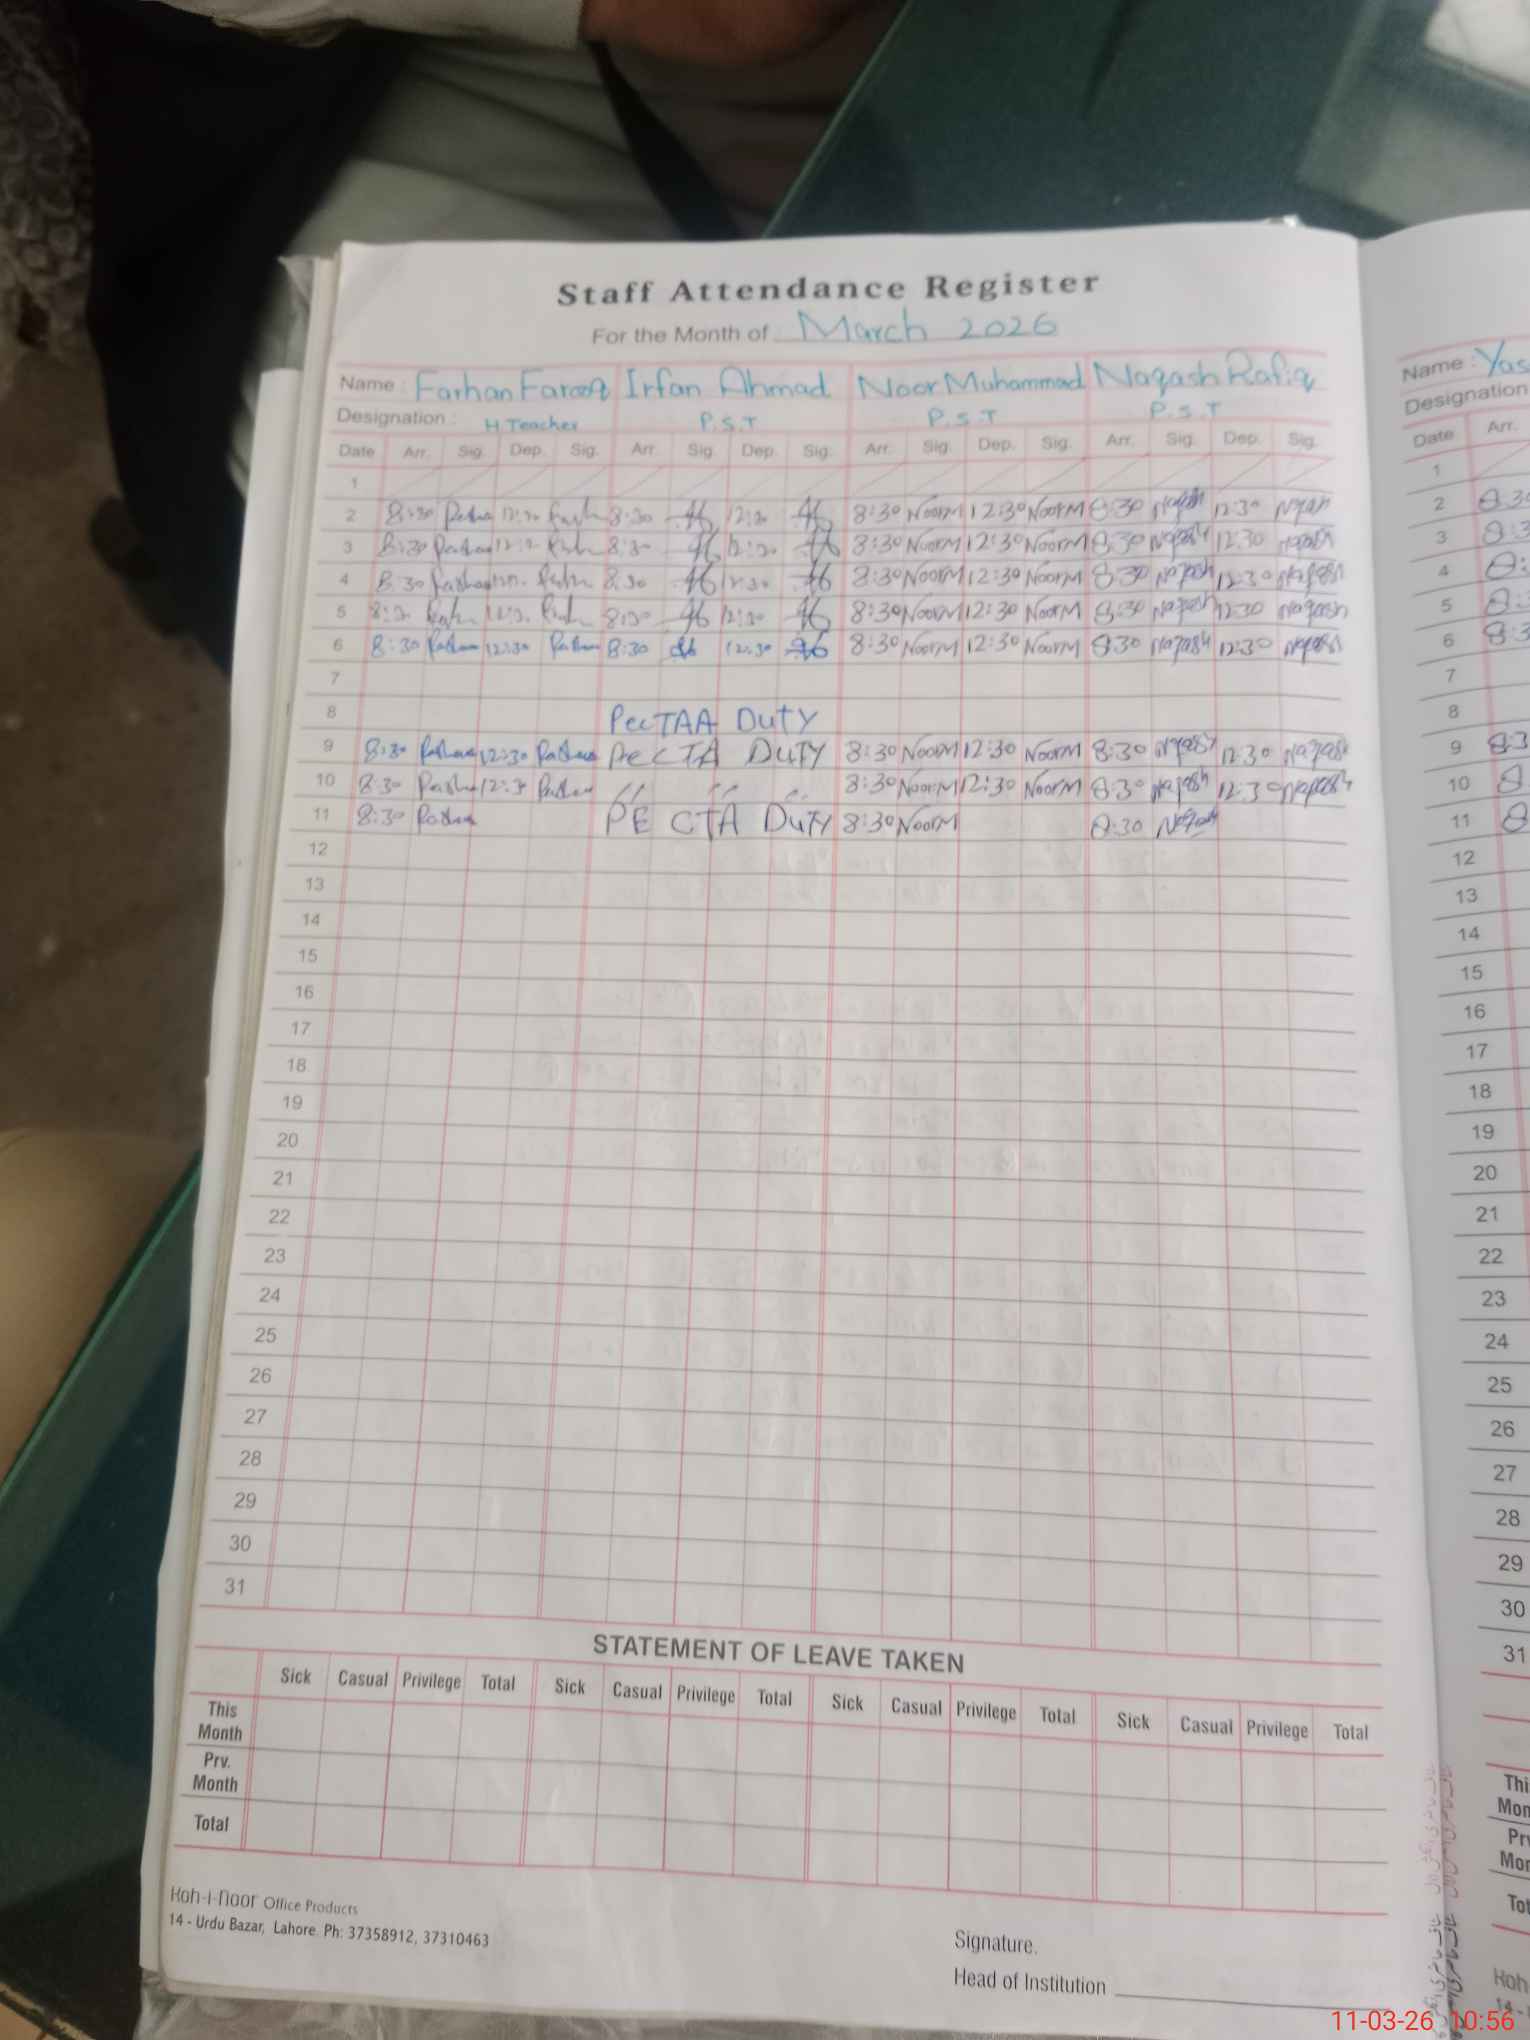 Staff Attendance Register
For the Month of March 2026
Name : Farhan Farooq Irfan Ahmad Noor Muhammad Naqash Rafiq
Designation : H.Teacher P.S.T P.S.T P.S.T
Date Arr. Sig. Dep. Sig. Arr. Sig. Dep. Sig. Arr. Sig. Dep. Sig. Arr. Sig. Dep. Sig.
1
2 8:30 12:30 8:30 12:30 8:30 NoorM 12:30 NoorM 8:30 Naqash 12:30 Naqash
3 8:30 12:30 8:30 12:30 8:30 NoorM 12:30 NoorM 8:30 Naqash 12:30 Naqash
4 8:30 8:30 12:30 8:30 NoorM 12:30 NoorM 8:30 Naqash 12:30 Naqash
5 8:30 12:30 8:30 12:30 8:30 NoorM 12:30 NoorM 8:30 Naqash 12:30 Naqash
6 8:30 12:30 8:30 12:30 8:30 NoorM 12:30 NoorM 8:30 Naqash 12:30 Naqash
7
8 PecTAA DUTY
9 8:30 12:30 PeCTA DUTY 8:30 NoorM 12:30 NoorM 8:30 Naqash 12:30 Naqash
10 8:30 12:30 " " " 8:30 NoorM 12:30 NoorM 8:30 Naqash 12:30 Naqash
11 8:30 PECTA DUTY 8:30 NoorM 8:30 Naqash
12
13
14
15
16
17
18
19
20
21
22
23
24
25
26
27
28
29
30
31
STATEMENT OF LEAVE TAKEN
Sick Casual Privilege Total Sick Casual Privilege Total Sick Casual Privilege Total Sick Casual Privilege Total
This Month
Prv. Month
Total
Koh-i-Noor Office Products
14 - Urdu Bazar, Lahore. Ph: 37358912, 37310463
Signature.
Head of Institution
Name : Yas
Designation
Date Arr.
1
2 8:30
3 8:3
4 8:
5 8:
6 8:3
7
8
9 8:3
10 8
11 8
12
13
14
15
16
17
18
19
20
21
22
23
24
25
26
27
28
29
30
31
Thi
Mon
Prv
Mor
Tot
Koh
14 -
11-03-26 10:56